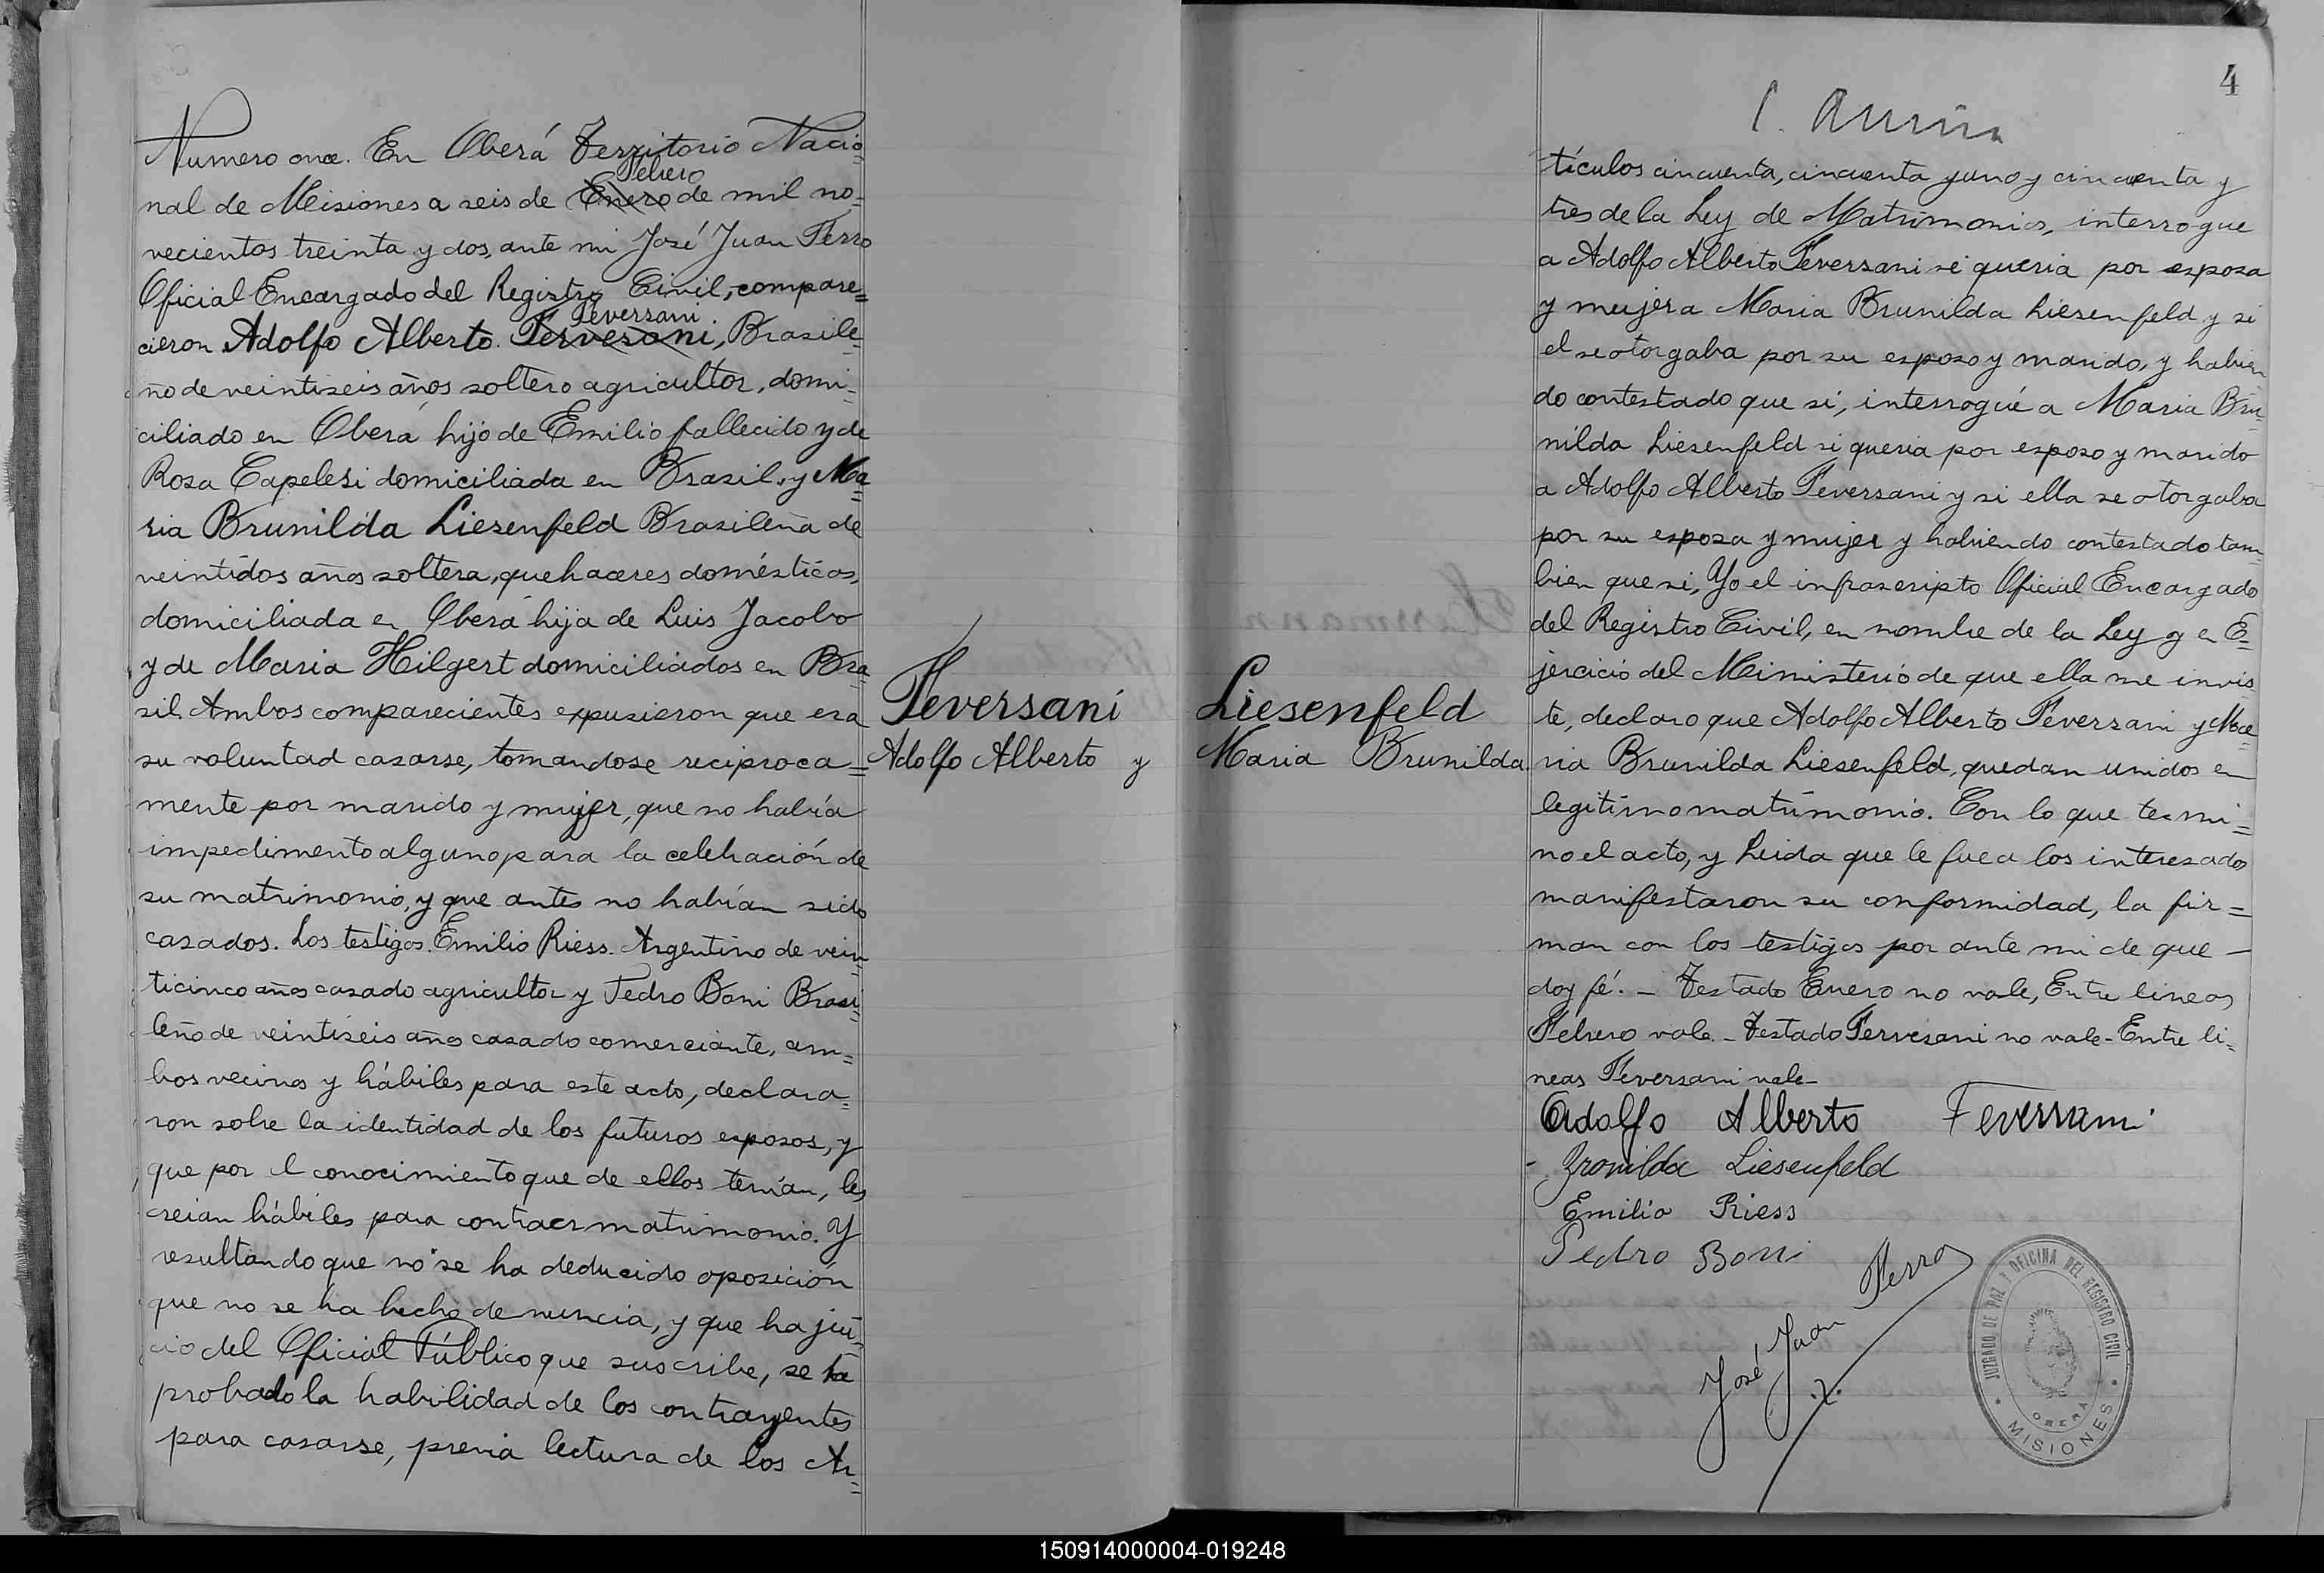 Numero once. En Oberá Territorio Nacio=
nal de Misiones a seis de Enero Febrero de mil no=
vecientos treinta y dos, ante mi José Juan Ferro
Oficial Encargado del Registro Civil, compare=
cieron Adolfo Alberto Fervesani, Feversani. Brasile=
ño de veintiseis años soltero agricultor, domi=
ciliado en Oberá hijo de Emilio fallecido y de
Rosa Capelesi domiciliada en Brasil, y Ma=
ria Brunilda Liesenfeld Brasileña de
veintidos años soltera, quehaceres domésticos,
domiciliada en Oberá hija de Luis Jacobo
y de Maria Hilgert domiciliados en Bra=
sil. Ambos comparecientes expusieron que era
su voluntad casarse, tomandose reciproca=
mente por marido y mujer, que no había
impedimento alguno para la celebración de
su matrimonio, y que antes no habían sido
casados. Los testigos. Emilio Riess. Argentino de vein=
ticinco años casado agricultor y Pedro Boni Brasi=
leño de veintiseis años casado comerciante, am=
bos vecinos y hábiles para este acto, declara=
ron sobre la identidad de los futuros esposos, y
que por el conocimiento que de ellos tenían, les
creian hábiles para contraer matrimonio. Y
resultando que no se ha deducido oposición
que no se ha hecho denuncia, y que ha jui=
cio del Oficial Público que suscribe, se ha
probado la habilidad de los contrayentes
para casarse, previa lectura de los Ar=
Feversani
Adolfo Alberto y
Liesenfeld
Maria Brunilda.
4
tículos cincuenta, cincuenta y uno y cincuenta y
tres de la Ley de Matrimonios, interrogue
a Adolfo Alberto Feversani si queria por esposa
y mujer a Maria Brunilda Liesenfeld y si
el se otorgaba por su esposo y marido, y habien
do contestado que si, interrogué a Maria Bru=
nilda Liesenfeld si queria por esposo y marido
a Adolfo Alberto Feversani y si ella se otorgaba
por su esposa y mujer y habiendo contestado tam=
bien que si, Yo el infrascripto Oficial Encargado
del Registro Civil, en nombre de la Ley y en E=
jercicio del Ministerio de que ella me invis=
te, declaro que Adolfo Alberto Feversani y Ma=
ria Brunilda Liesenfeld, quedan unidos en
legitimo matrimonio. Con lo que termi=
no el acto, y Leida que le fue a los interesados
manifestaron su conformidad, la fir=
man con los testigos por ante mi de que —
doy fé. — Testado Enero no vale, Entre lineas
Febrero vale. — Testado Fervesani no vale - Entre li=
neas Feversani vale—
Adolfo Alberto Feversani
Bronilda Liesenfeld
Emilio Riess
Pedro Boni
José Juan Ferro
JUZGADO DE PAZ Y OFICINA DEL REGISTRO CIVIL
OBERÁ
MISIONES
150914000004-019248